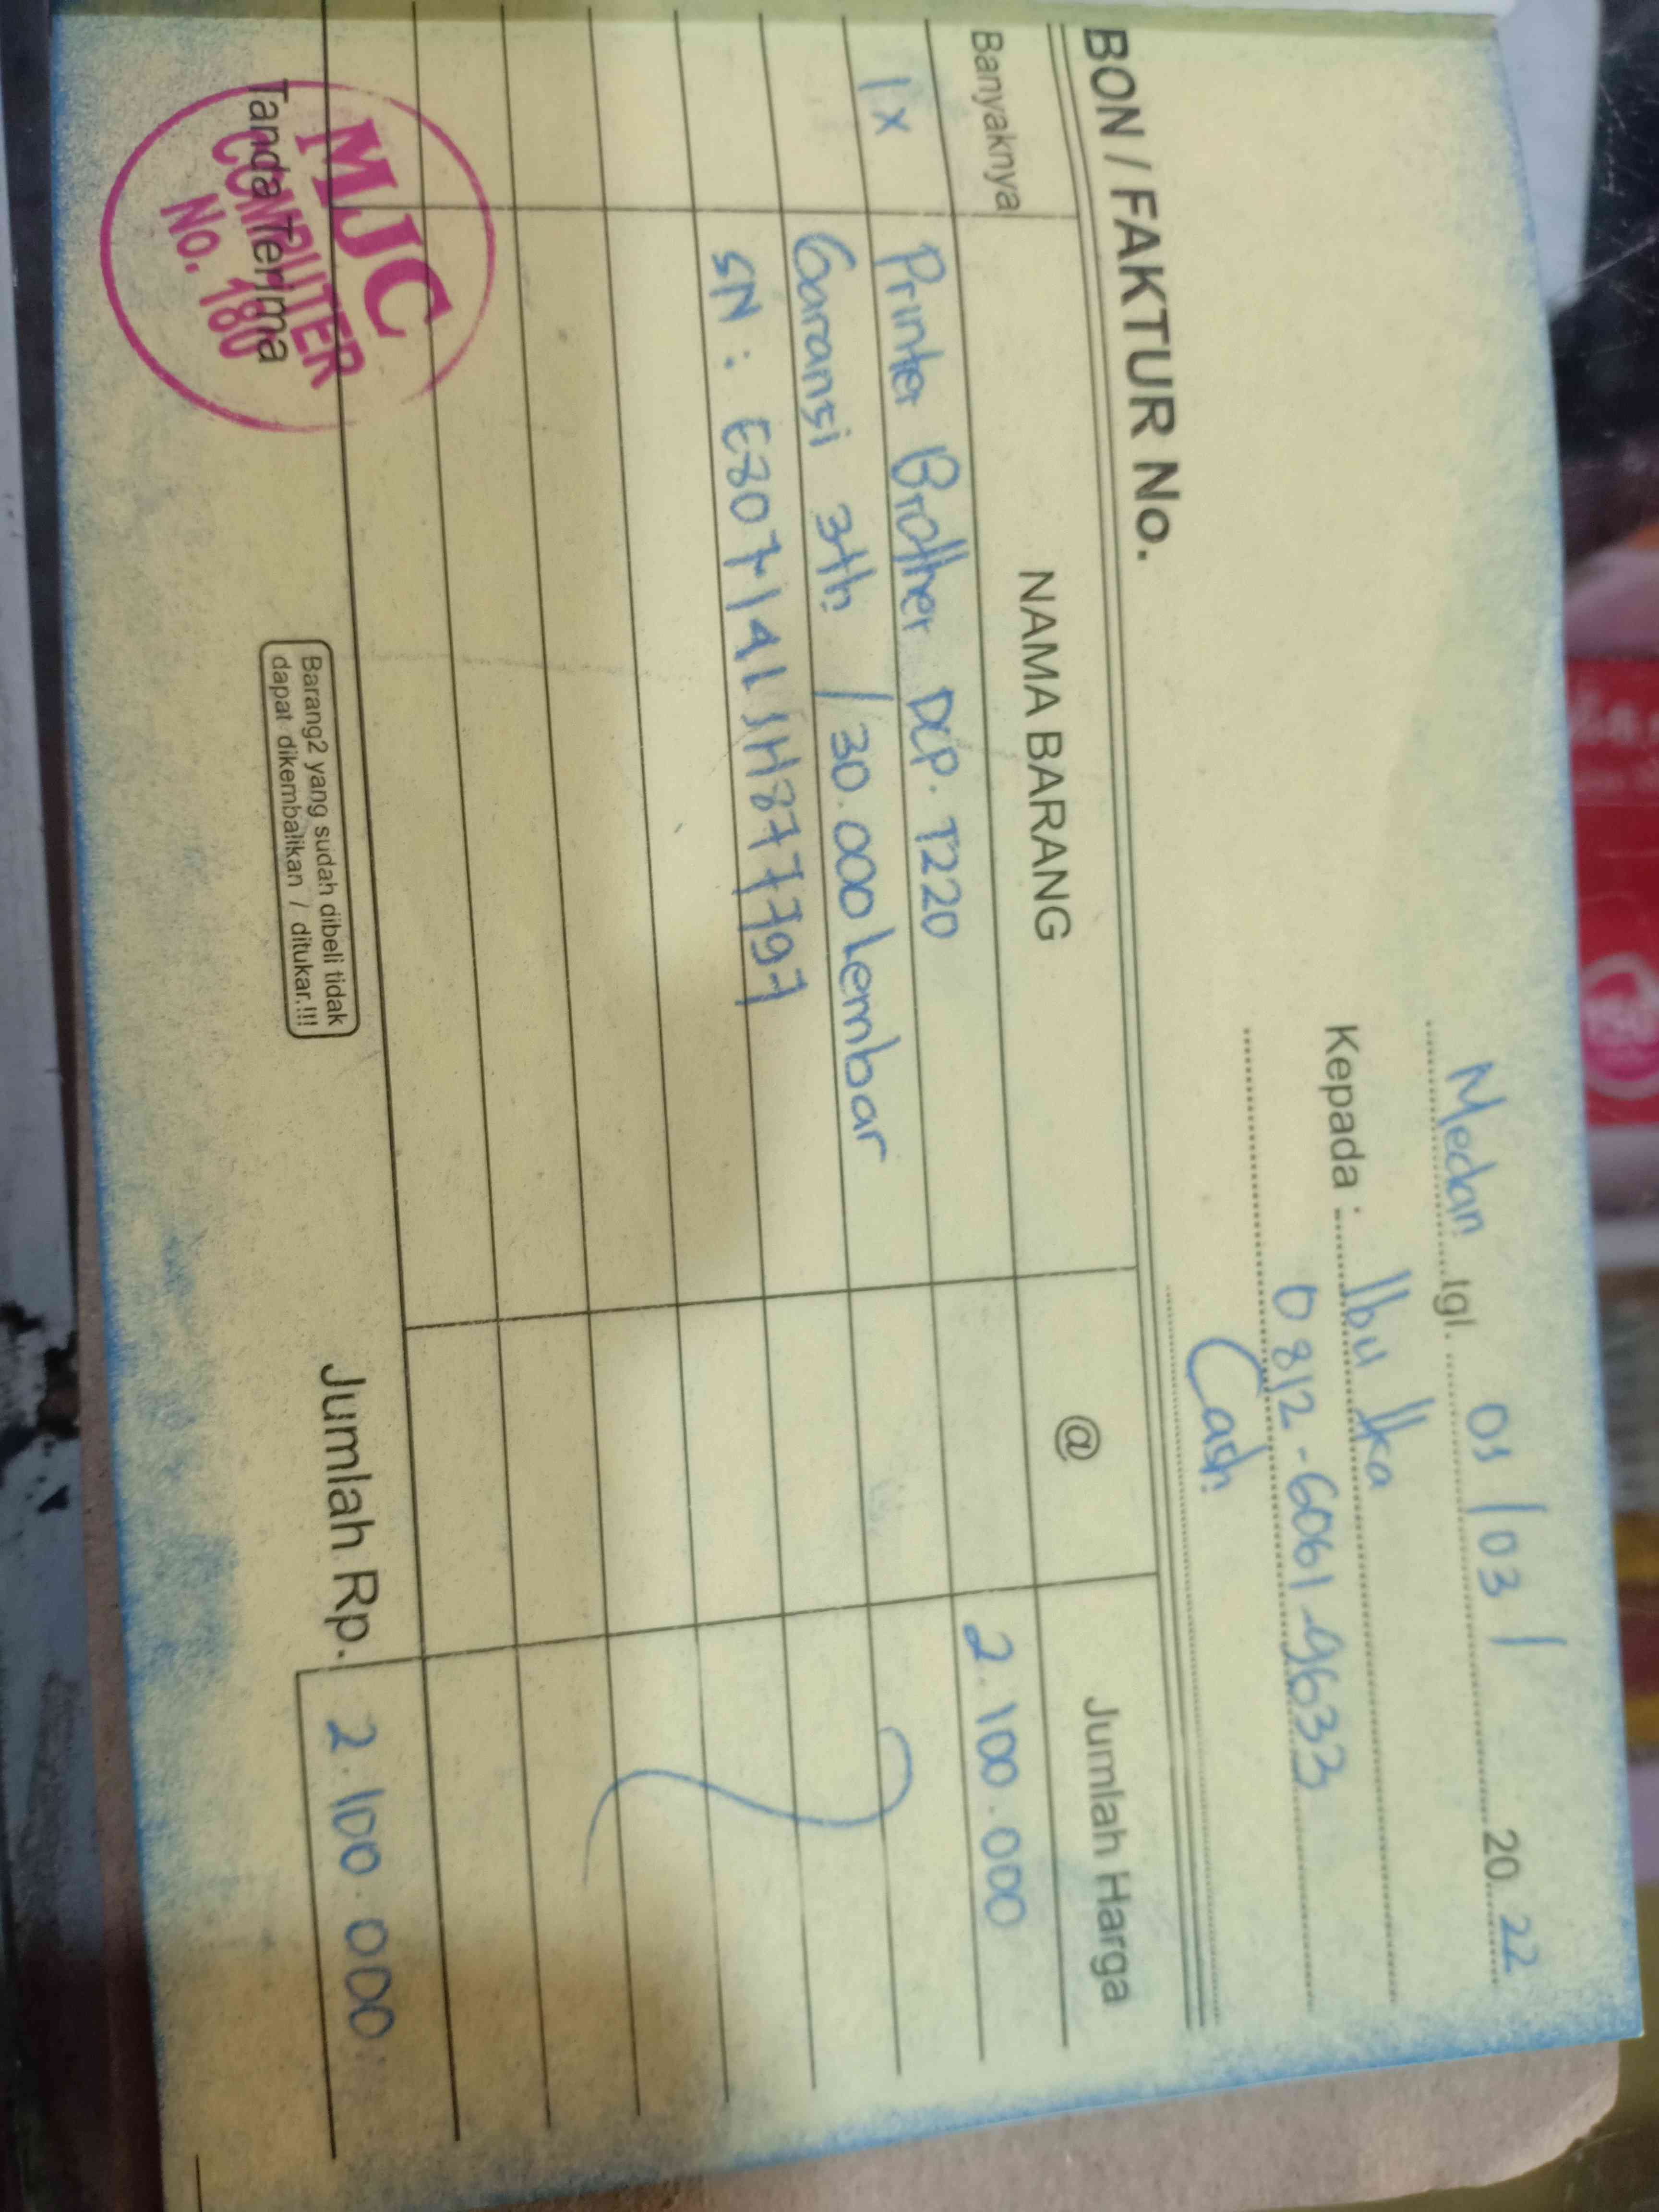 Medan tgl. 01 / 03 / 20 22
Kepada : Ibu Ika
0812-6061-9633
Cash
BON / FAKTUR No.
Banyaknya NAMA BARANG @ Jumlah Harga
1x Printer Brother DCP. T220 2.100.000
Garansi 3th / 30.000 lembar
SN :
Jumlah Rp. 2.100.000
Tanda Terima
MJC
COMPUTER
No. 180
Barang2 yang sudah dibeli tidak
dapat dikembalikan / ditukar.!!!